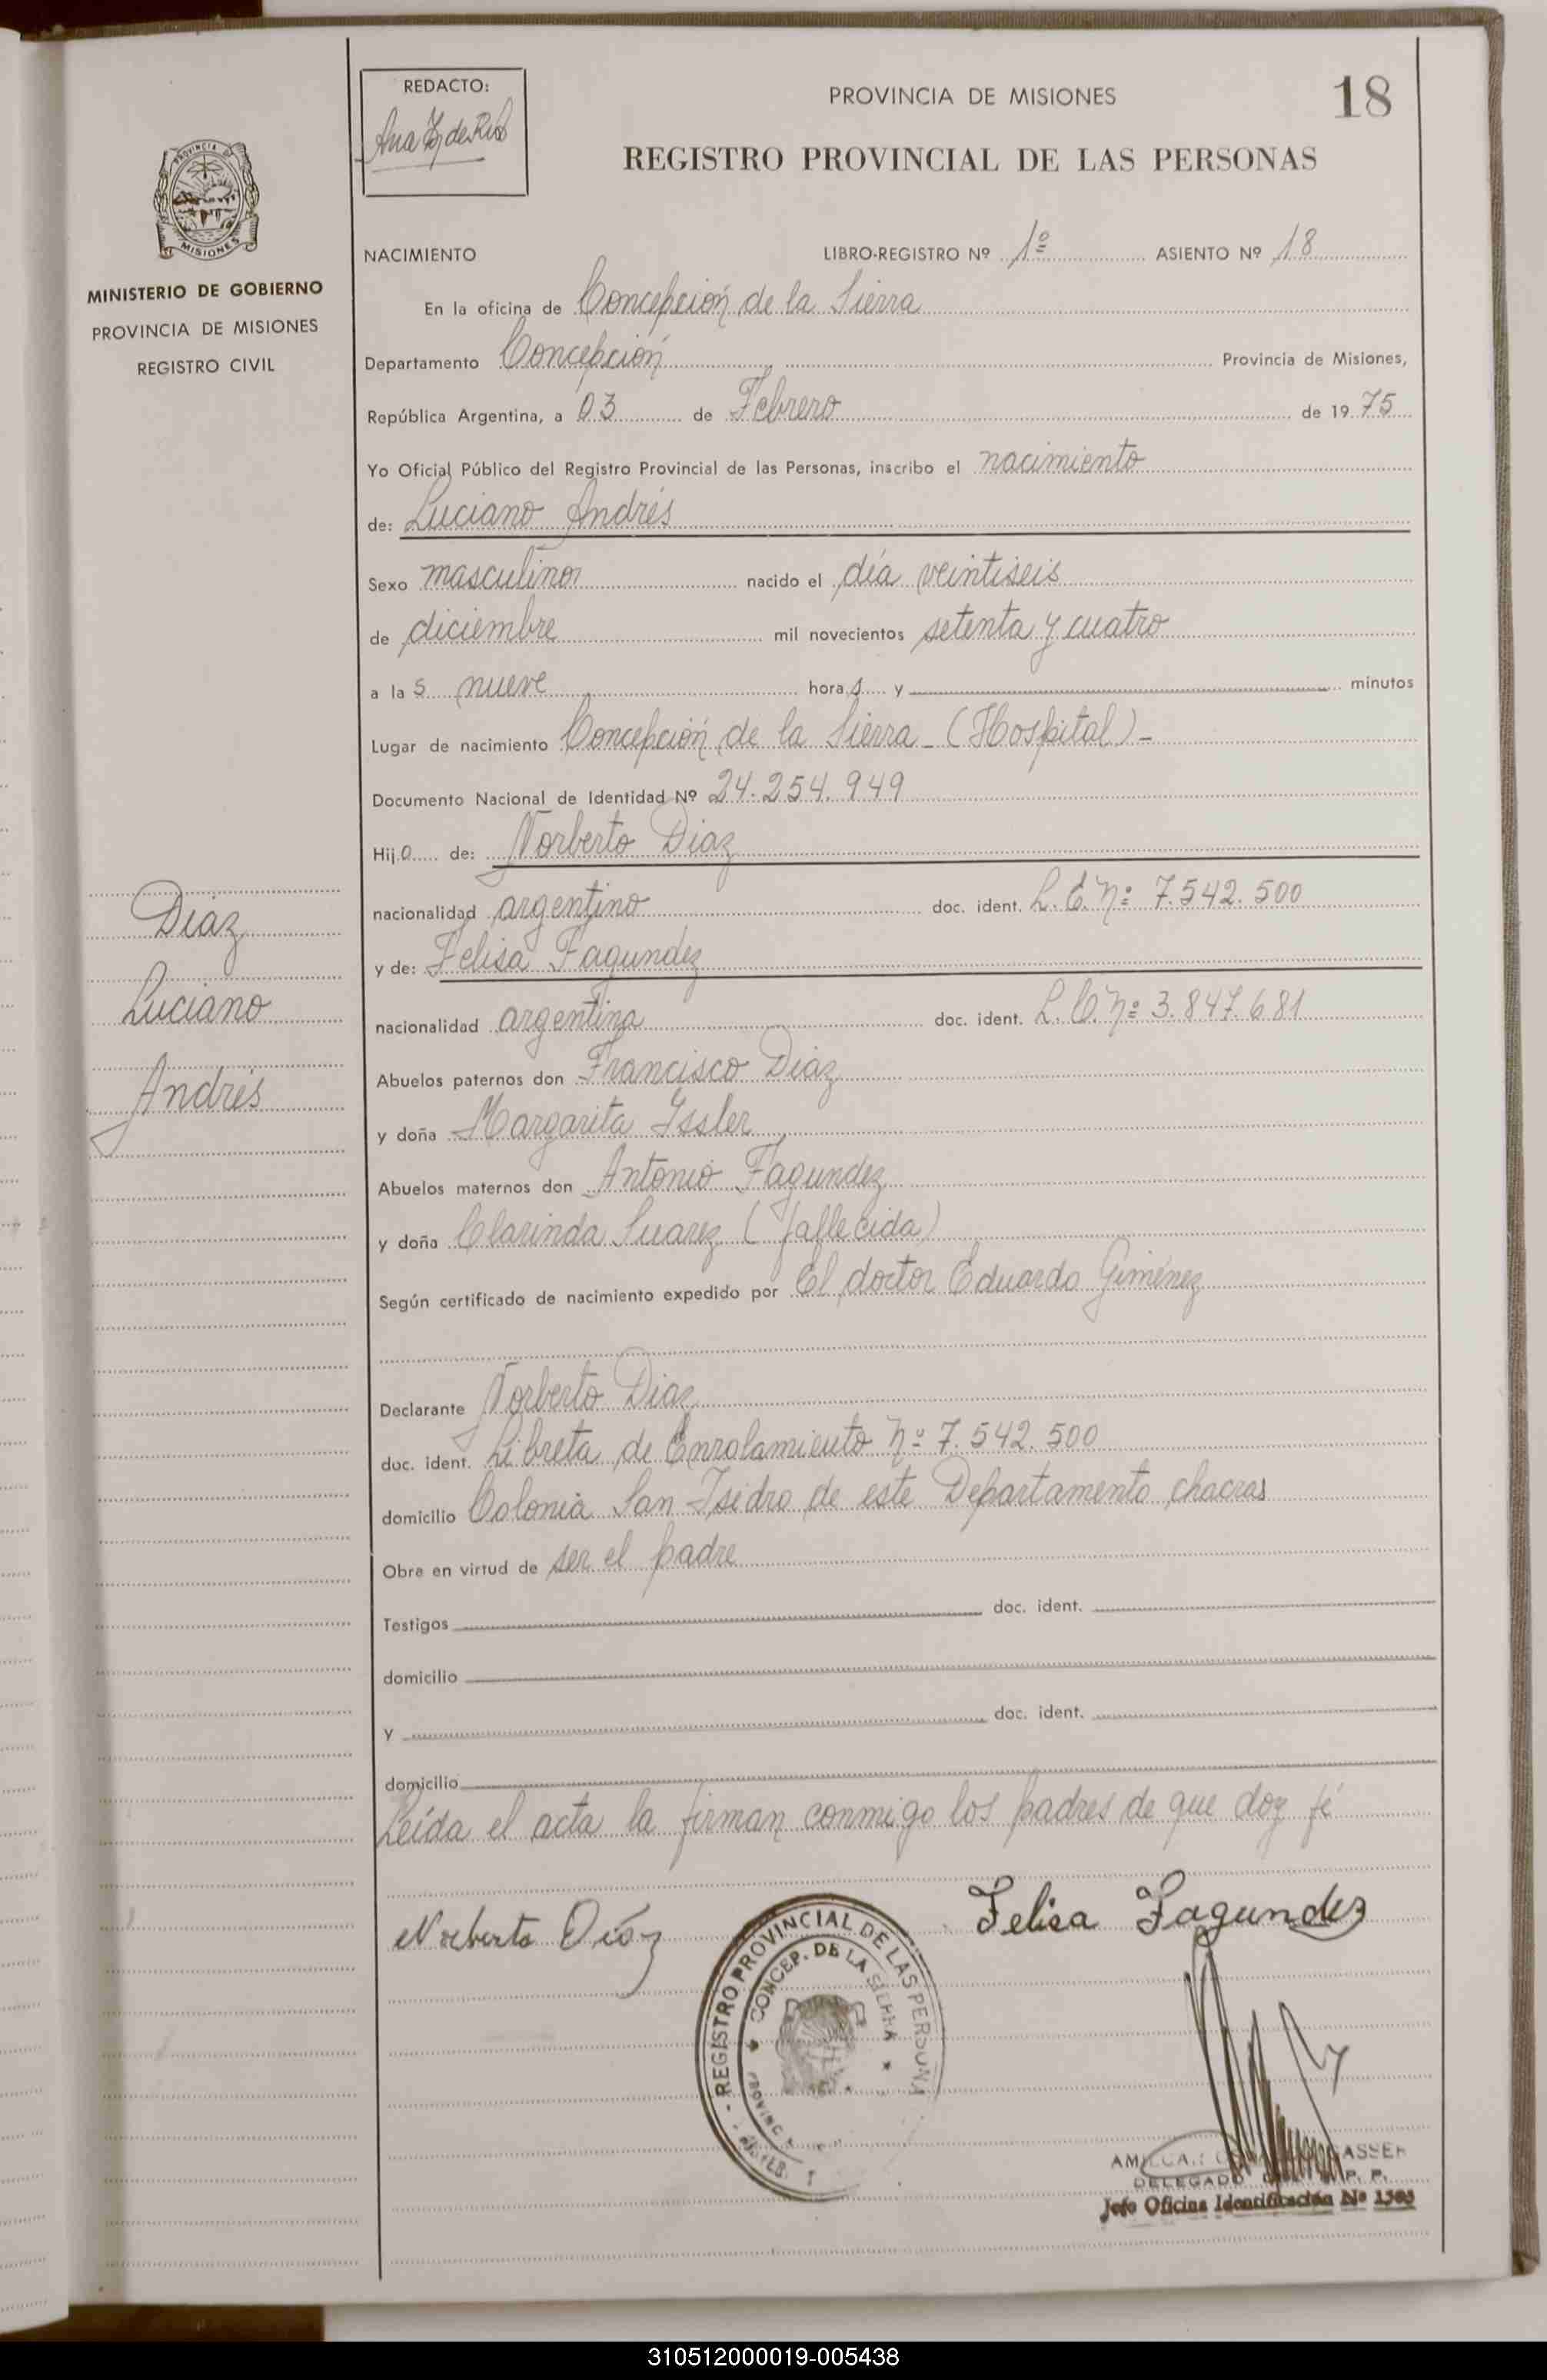 REDACTO:
Ana
PROVINCIA DE MISIONES
18
REGISTRO PROVINCIAL DE LAS PERSONAS
PROVINCIA DE
MISIONES
MINISTERIO DE GOBIERNO
PROVINCIA DE MISIONES
REGISTRO CIVIL
NACIMIENTO LIBRO-REGISTRO Nº 1º ASIENTO Nº 18
En la oficina de Concepción de la Sierra
Departamento Concepción Provincia de Misiones,
República Argentina, a 03 de Febrero de 1975
Yo Oficial Público del Registro Provincial de las Personas, inscribo el nacimiento
de: Luciano Andrés
Sexo masculino nacido el día veintiseis
de diciembre mil novecientos setenta y cuatro
a las nueve horas y minutos
Lugar de nacimiento Concepción de la Sierra - (Hospital) -
Documento Nacional de Identidad Nº 24.254.949
Hijo de: Norberto Diaz
nacionalidad argentino doc. ident. L.E. Nº 7.542.500
y de: Felisa Fagundez
nacionalidad argentina doc. ident. L.C. Nº 3.847.681
Abuelos paternos don Francisco Diaz
y doña Margarita Issler
Abuelos maternos don Antonio Fagundez
y doña Clarinda Suarez (fallecida)
Según certificado de nacimiento expedido por El doctor Eduardo Giménez
Declarante Norberto Diaz
doc. ident. Libreta de Enrolamiento Nº 7.542.500
domicilio Colonia San Isidro de este Departamento chacras
Obra en virtud de ser el padre
Testigos doc. ident.
domicilio
y doc. ident.
domicilio
Leída el acta la firman conmigo los padres de que doy fé
Diaz
Luciano
Andrés
Norberto Díaz
Felisa Fagundez
REGISTRO PROVINCIAL DE LAS PERSONA
CONCEP. DE LA SIERRA
DELEGADO
Jefe Oficina Identificación Nº
310512000019-005438